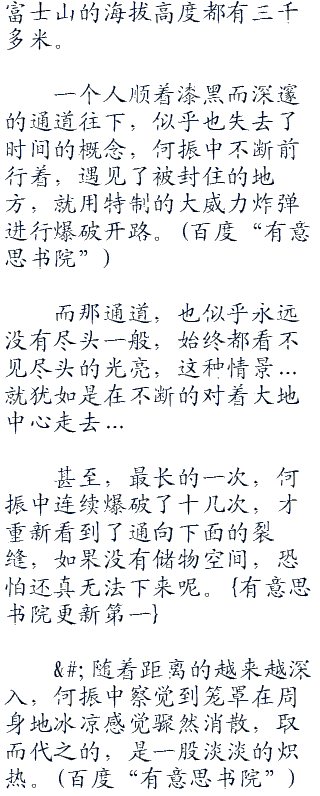 富士山的海拔高度都有三千
多米。
一个人顺着漆黑而深邃
的通道往下，似乎也失去了
时间的概念，何振中不断前
行着，遇见了被封住的地
方，就用特制的大威力炸弹
进行爆破开路。(百度“有意
思书院”)
而那通道，也似乎永远
没有尽头一般，始终都看不
见尽头的光亮，这种情景...
就犹如是在不断的对着大地
中心走去...
甚至，最长的一次，何
振中连续爆破了十几次，才
重新看到了通向下面的裂
缝，如果没有储物空间，恐
怕还真无法下来呢。{有意思
书院更新第一}
&#;随着距离的越来越深
入，何振中察觉到笼罩在周
身地冰凉感觉骤然消散，取
而代之的，是一股淡淡的炽
热。(百度“有意思书院”)